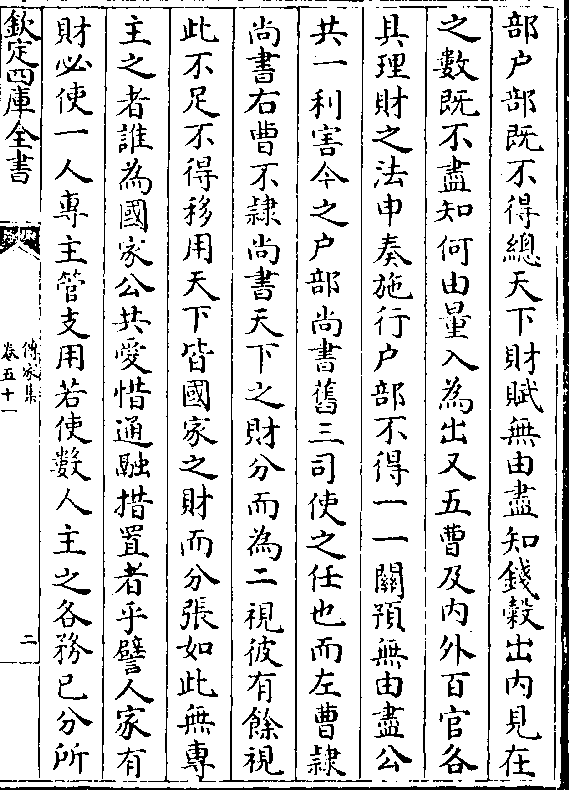 部户部既不得總天下財賦無由盡知錢榖出内見在
之數既不盡知何由量入為出又五曹及内外百官各
具理財之法申奏施行户部不得一一關預無由盡公
共一利害今之户部尚書舊三司使之任也而左曹隸
尚書右曹不隸尚書天下之財分而為二視彼有餘視
此不足不得移用天下皆國家之財而分張如此無專
主之者誰為國家公共愛惜通融措置者乎譬人家有
財必使一人專主管支用若使數人主之各務已分所
欽定四庫全書
傳家集
卷五十一
二